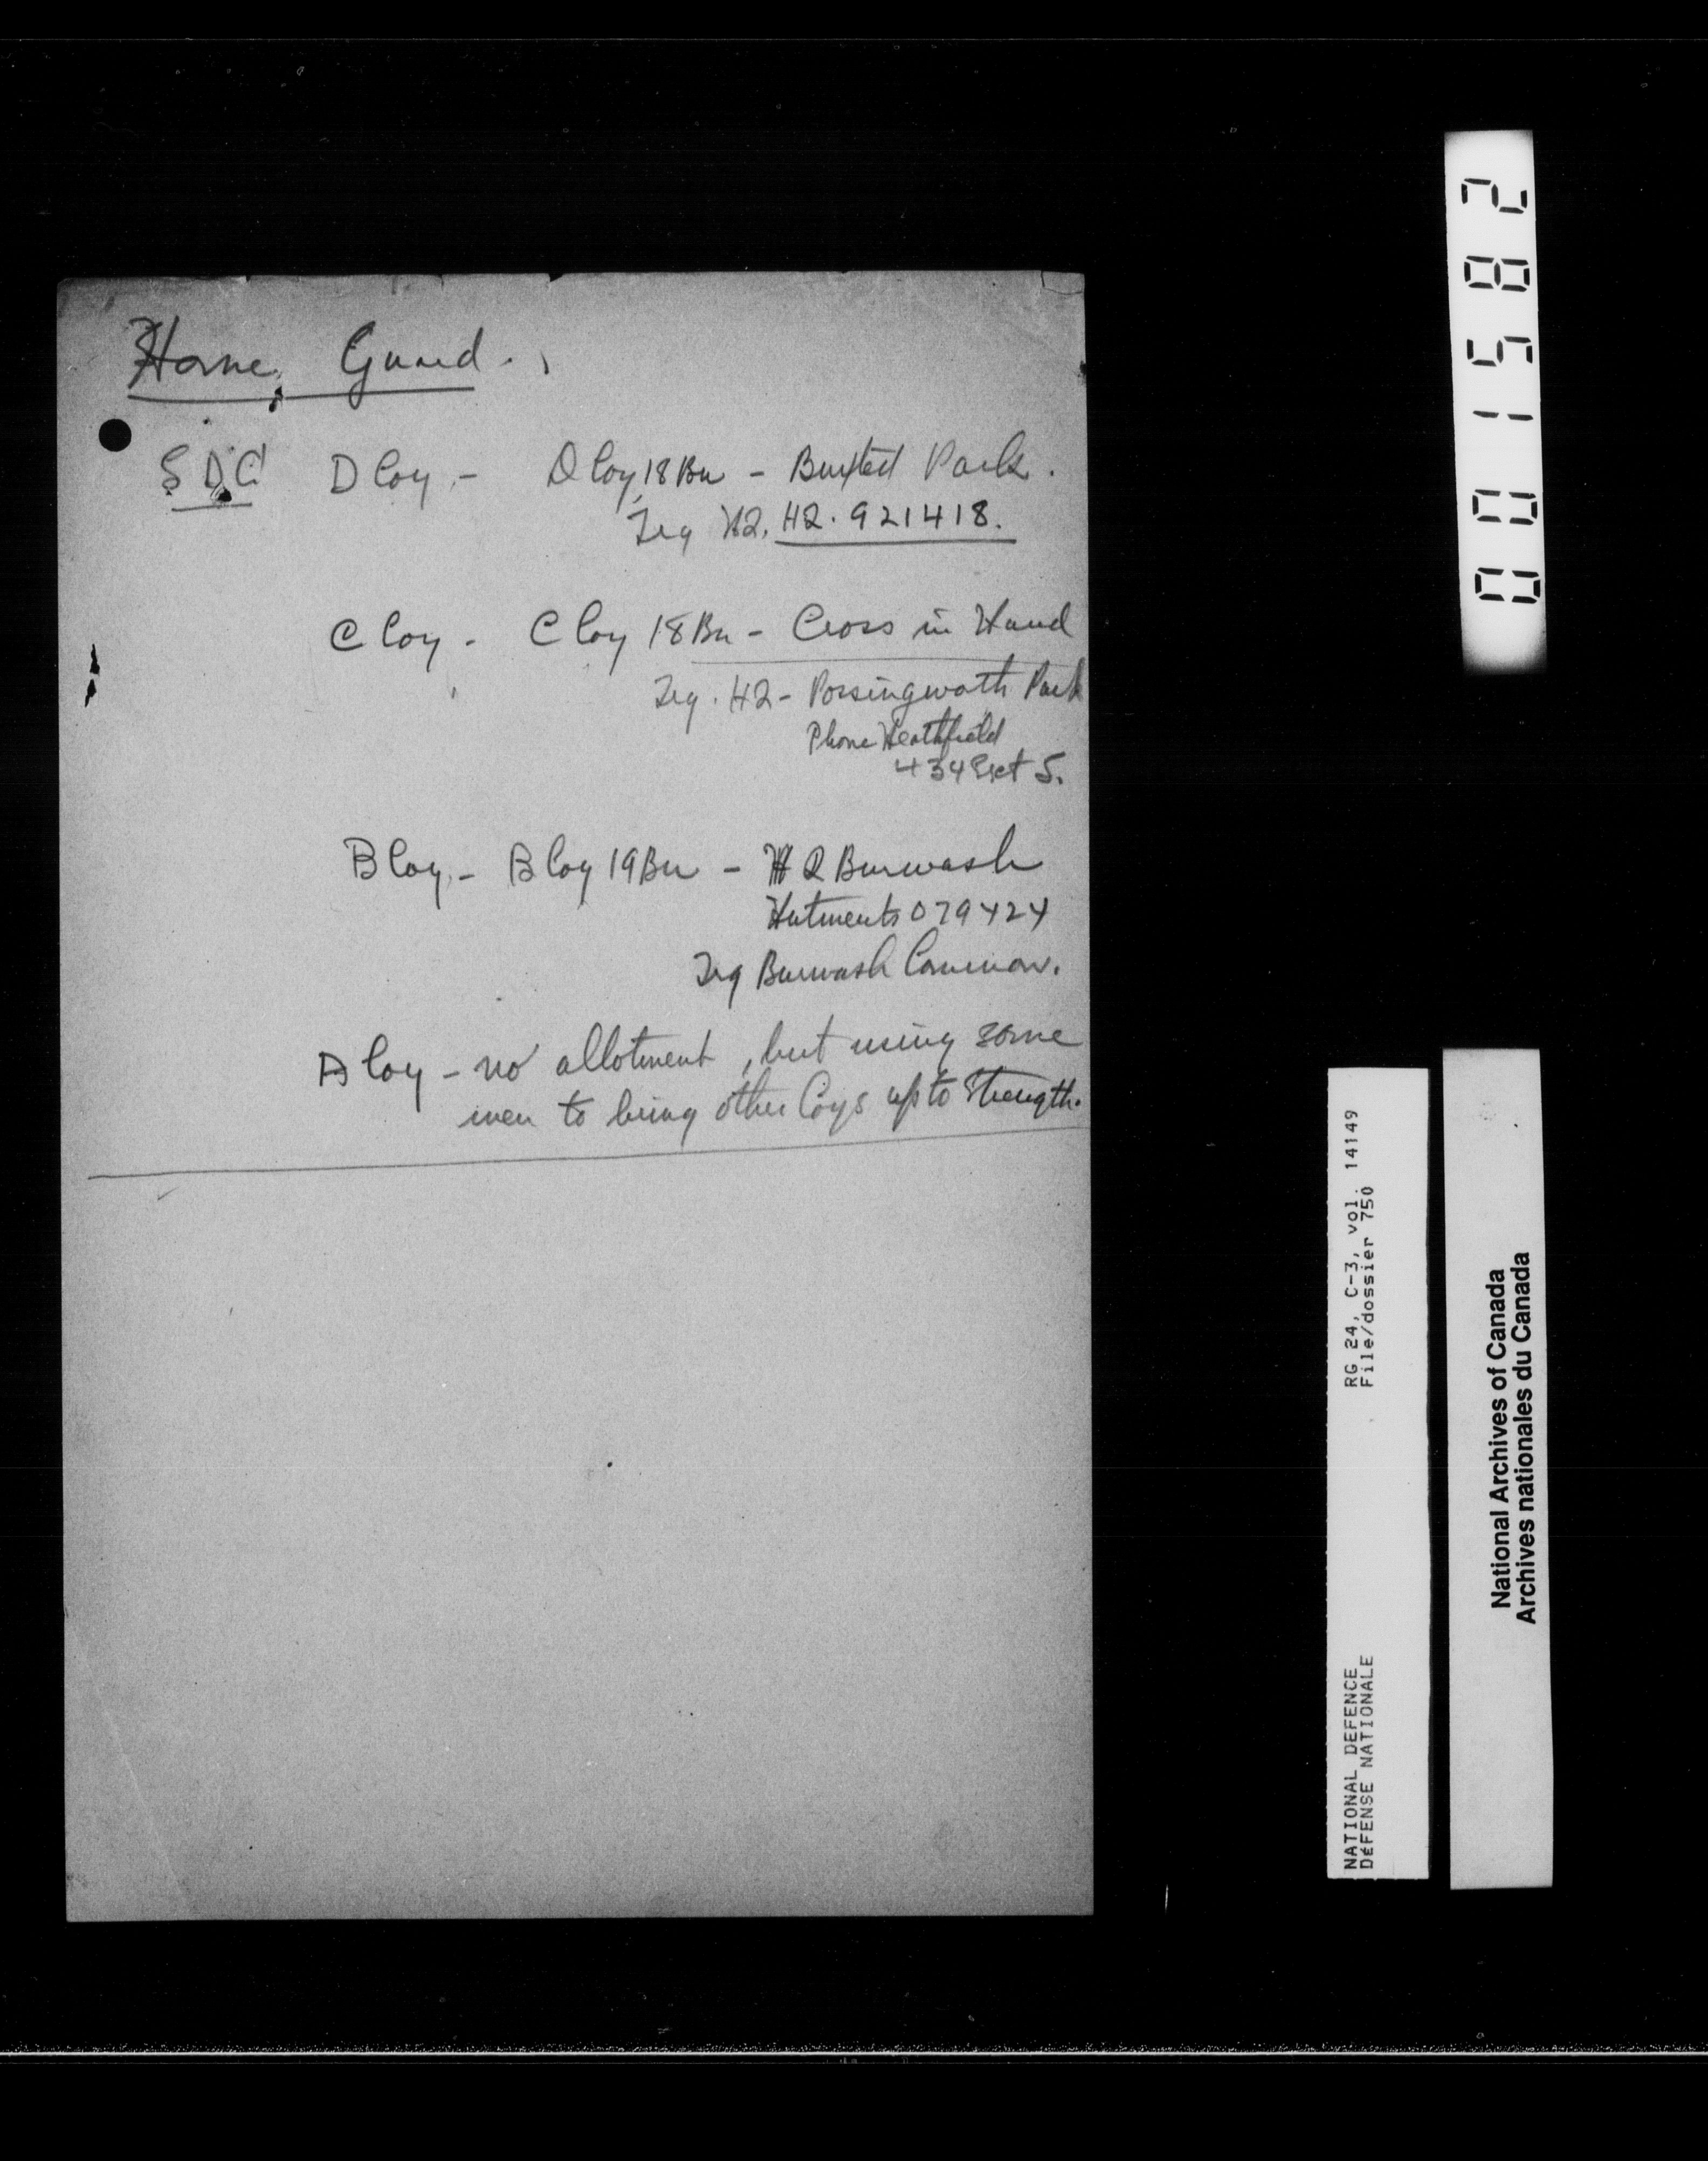 Home Guard.
S D G D Coy - D Coy 18 Bn - Buxted Park.
Trg HQ. HQ. 921418.
C Coy - C Coy 18 Bn - Cross in Hand
Trg. HQ - Possingworth Park
Phone Heathfield
434 Ext 5.
B Coy - B Coy 19 Bn - HQ Burwash
Hutments 079424
Trg Burwash Common.
A Coy - no allotment, but using some
men to bring other Coys up to strength.
001582
RG 24, C-3, vol. 14149
File/dossier 750
NATIONAL DEFENCE
DÉFENSE NATIONALE
National Archives of Canada
Archives nationales du Canada